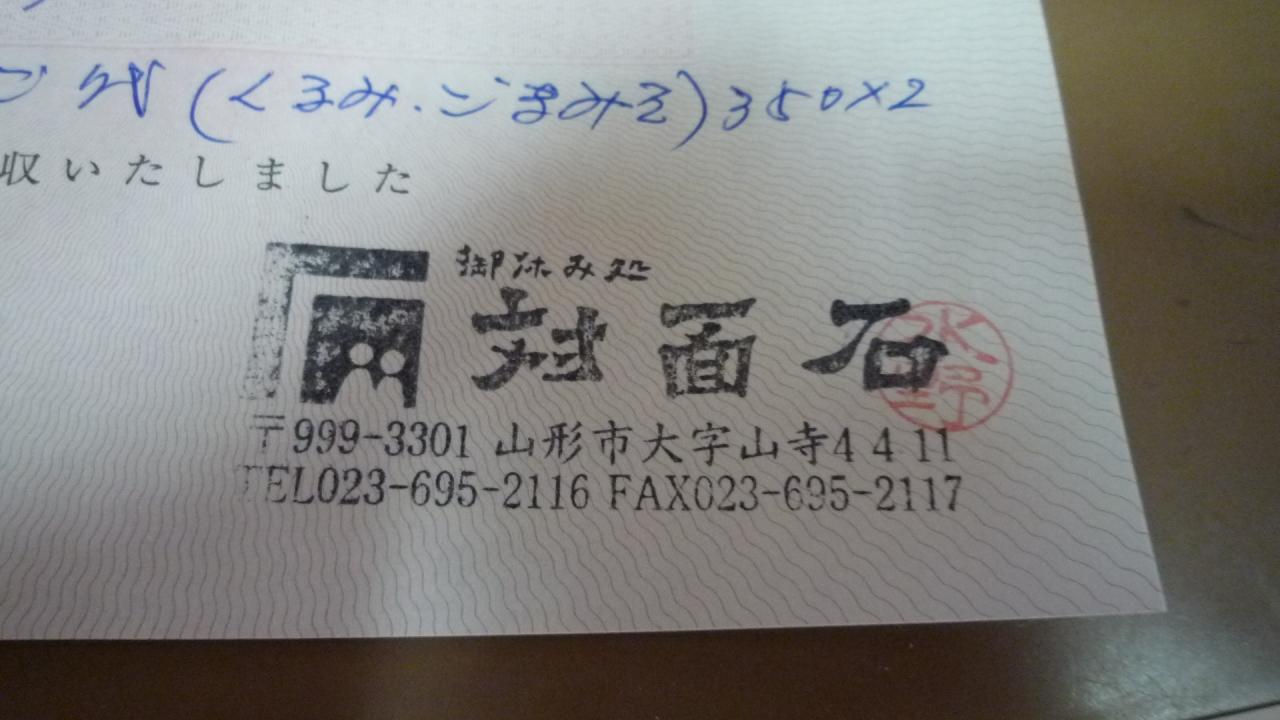 代(くるみ・ごまみそ)350×2
収いたしました
御休み処
対面石
水野
〒999-3301 山形市大字山寺4411
TEL023-695-2116 FAX023-695-2117